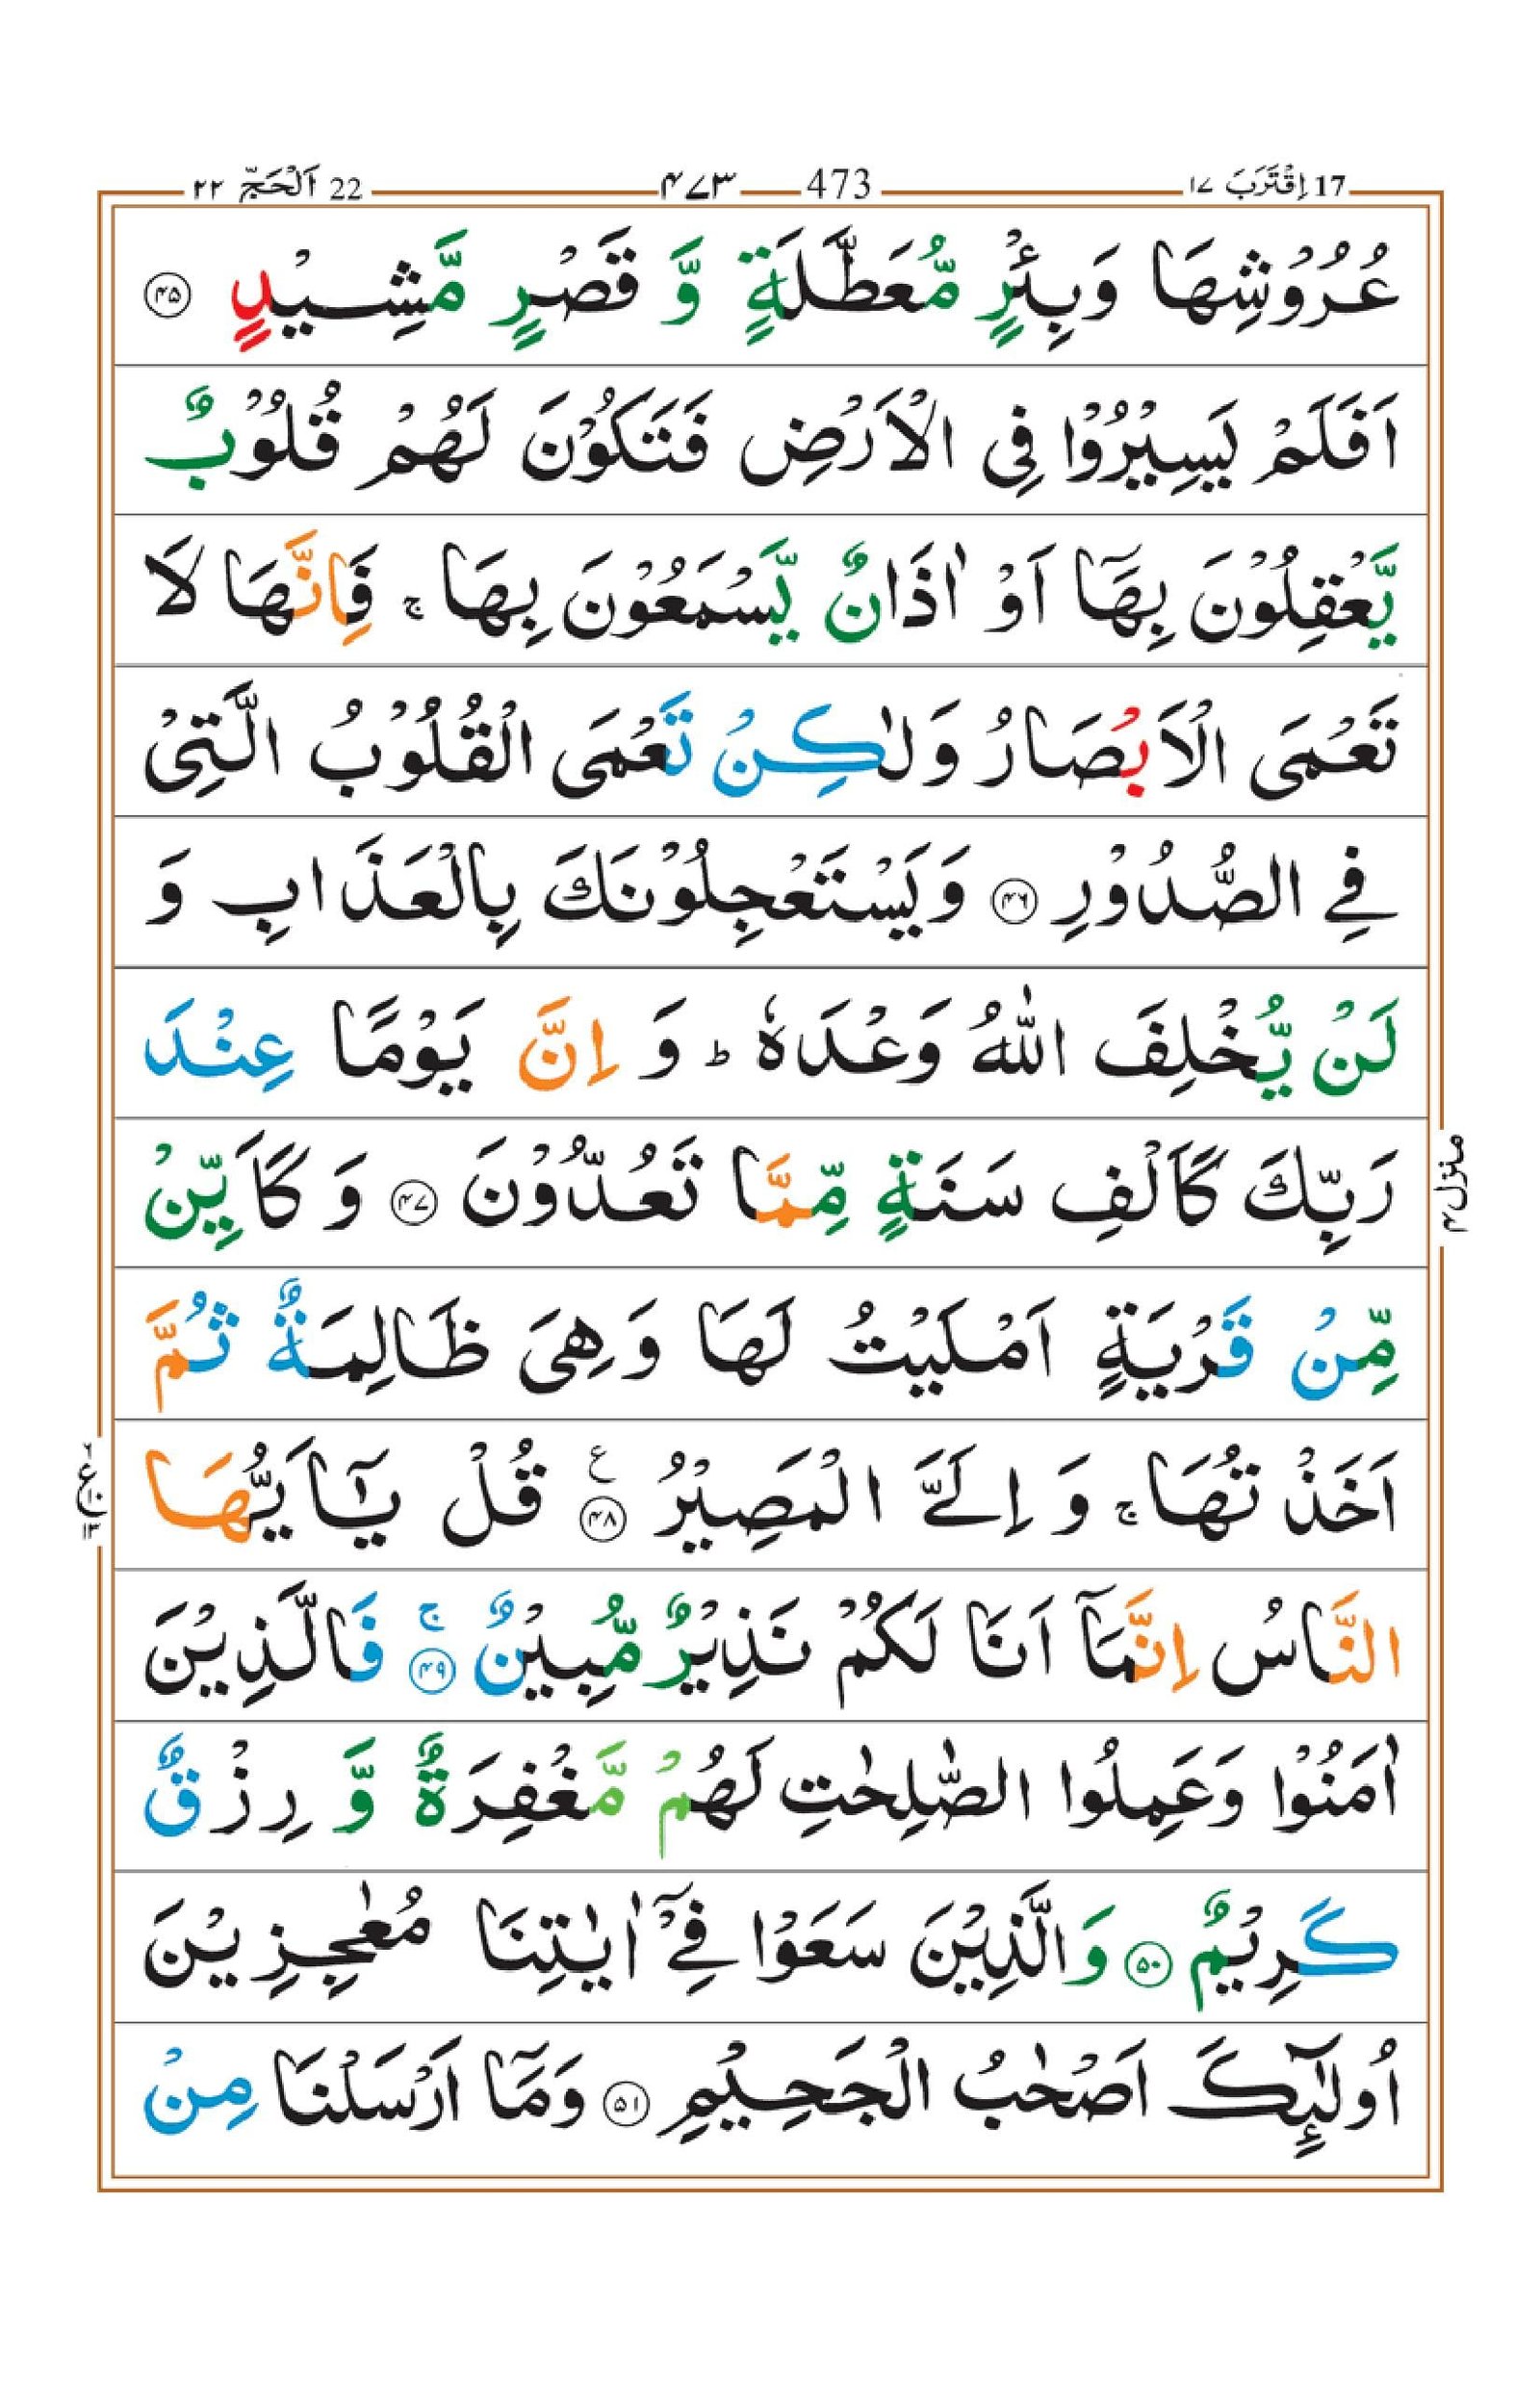 17 اِقْتَرَبَ ١٧ 473 ۴۷۳ 22 اَلْحَجّ ٢٢
عُرُوْشِهَا وَبِئْرٍ مُّعَطَّلَةٍ وَّ قَصْرٍ مَّشِيْدٍ ﴿۴۵﴾
اَفَلَمْ يَسِيْرُوْا فِى الْاَرْضِ فَتَكُوْنَ لَهُمْ قُلُوْبٌ
يَّعْقِلُوْنَ بِهَآ اَوْ اٰذَانٌ يَّسْمَعُوْنَ بِهَا ۚ فَاِنَّهَا لَا
تَعْمَى الْاَبْصَارُ وَلٰكِنْ تَعْمَى الْقُلُوْبُ الَّتِىْ
فِى الصُّدُوْرِ ﴿۴۶﴾ وَيَسْتَعْجِلُوْنَكَ بِالْعَذَابِ وَ
لَنْ يُّخْلِفَ اللّٰهُ وَعْدَهٗ ؕ وَ اِنَّ يَوْمًا عِنْدَ
رَبِّكَ كَاَلْفِ سَنَةٍ مِّمَّا تَعُدُّوْنَ ﴿۴۷﴾ وَ كَاَيِّنْ
مِّنْ قَرْيَةٍ اَمْلَيْتُ لَهَا وَهِىَ ظَالِمَةٌ ثُمَّ
اَخَذْتُهَا ۚ وَ اِلَىَّ الْمَصِيْرُ ﴿۴۸﴾ ع قُلْ يٰٓاَيُّهَا
النَّاسُ اِنَّمَآ اَنَا لَكُمْ نَذِيْرٌ مُّبِيْنٌ ﴿۴۹﴾ ۚ فَالَّذِيْنَ
اٰمَنُوْا وَعَمِلُوا الصّٰلِحٰتِ لَهُمْ مَّغْفِرَةٌ وَّ رِزْقٌ
كَرِيْمٌ ﴿۵۰﴾ وَالَّذِيْنَ سَعَوْا فِىْٓ اٰيٰتِنَا مُعٰجِزِيْنَ
اُولٰٓئِكَ اَصْحٰبُ الْجَحِيْمِ ﴿۵۱﴾ وَمَآ اَرْسَلْنَا مِنْ
منزل ۴